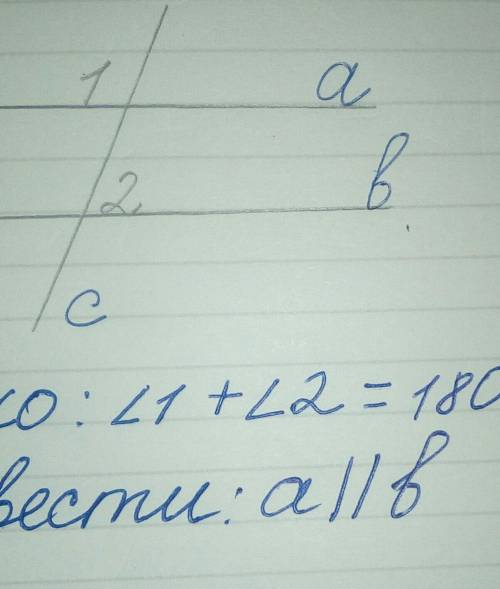 1 a
2 в
c
ко: ∠1 + ∠2 = 180
вести: a || в